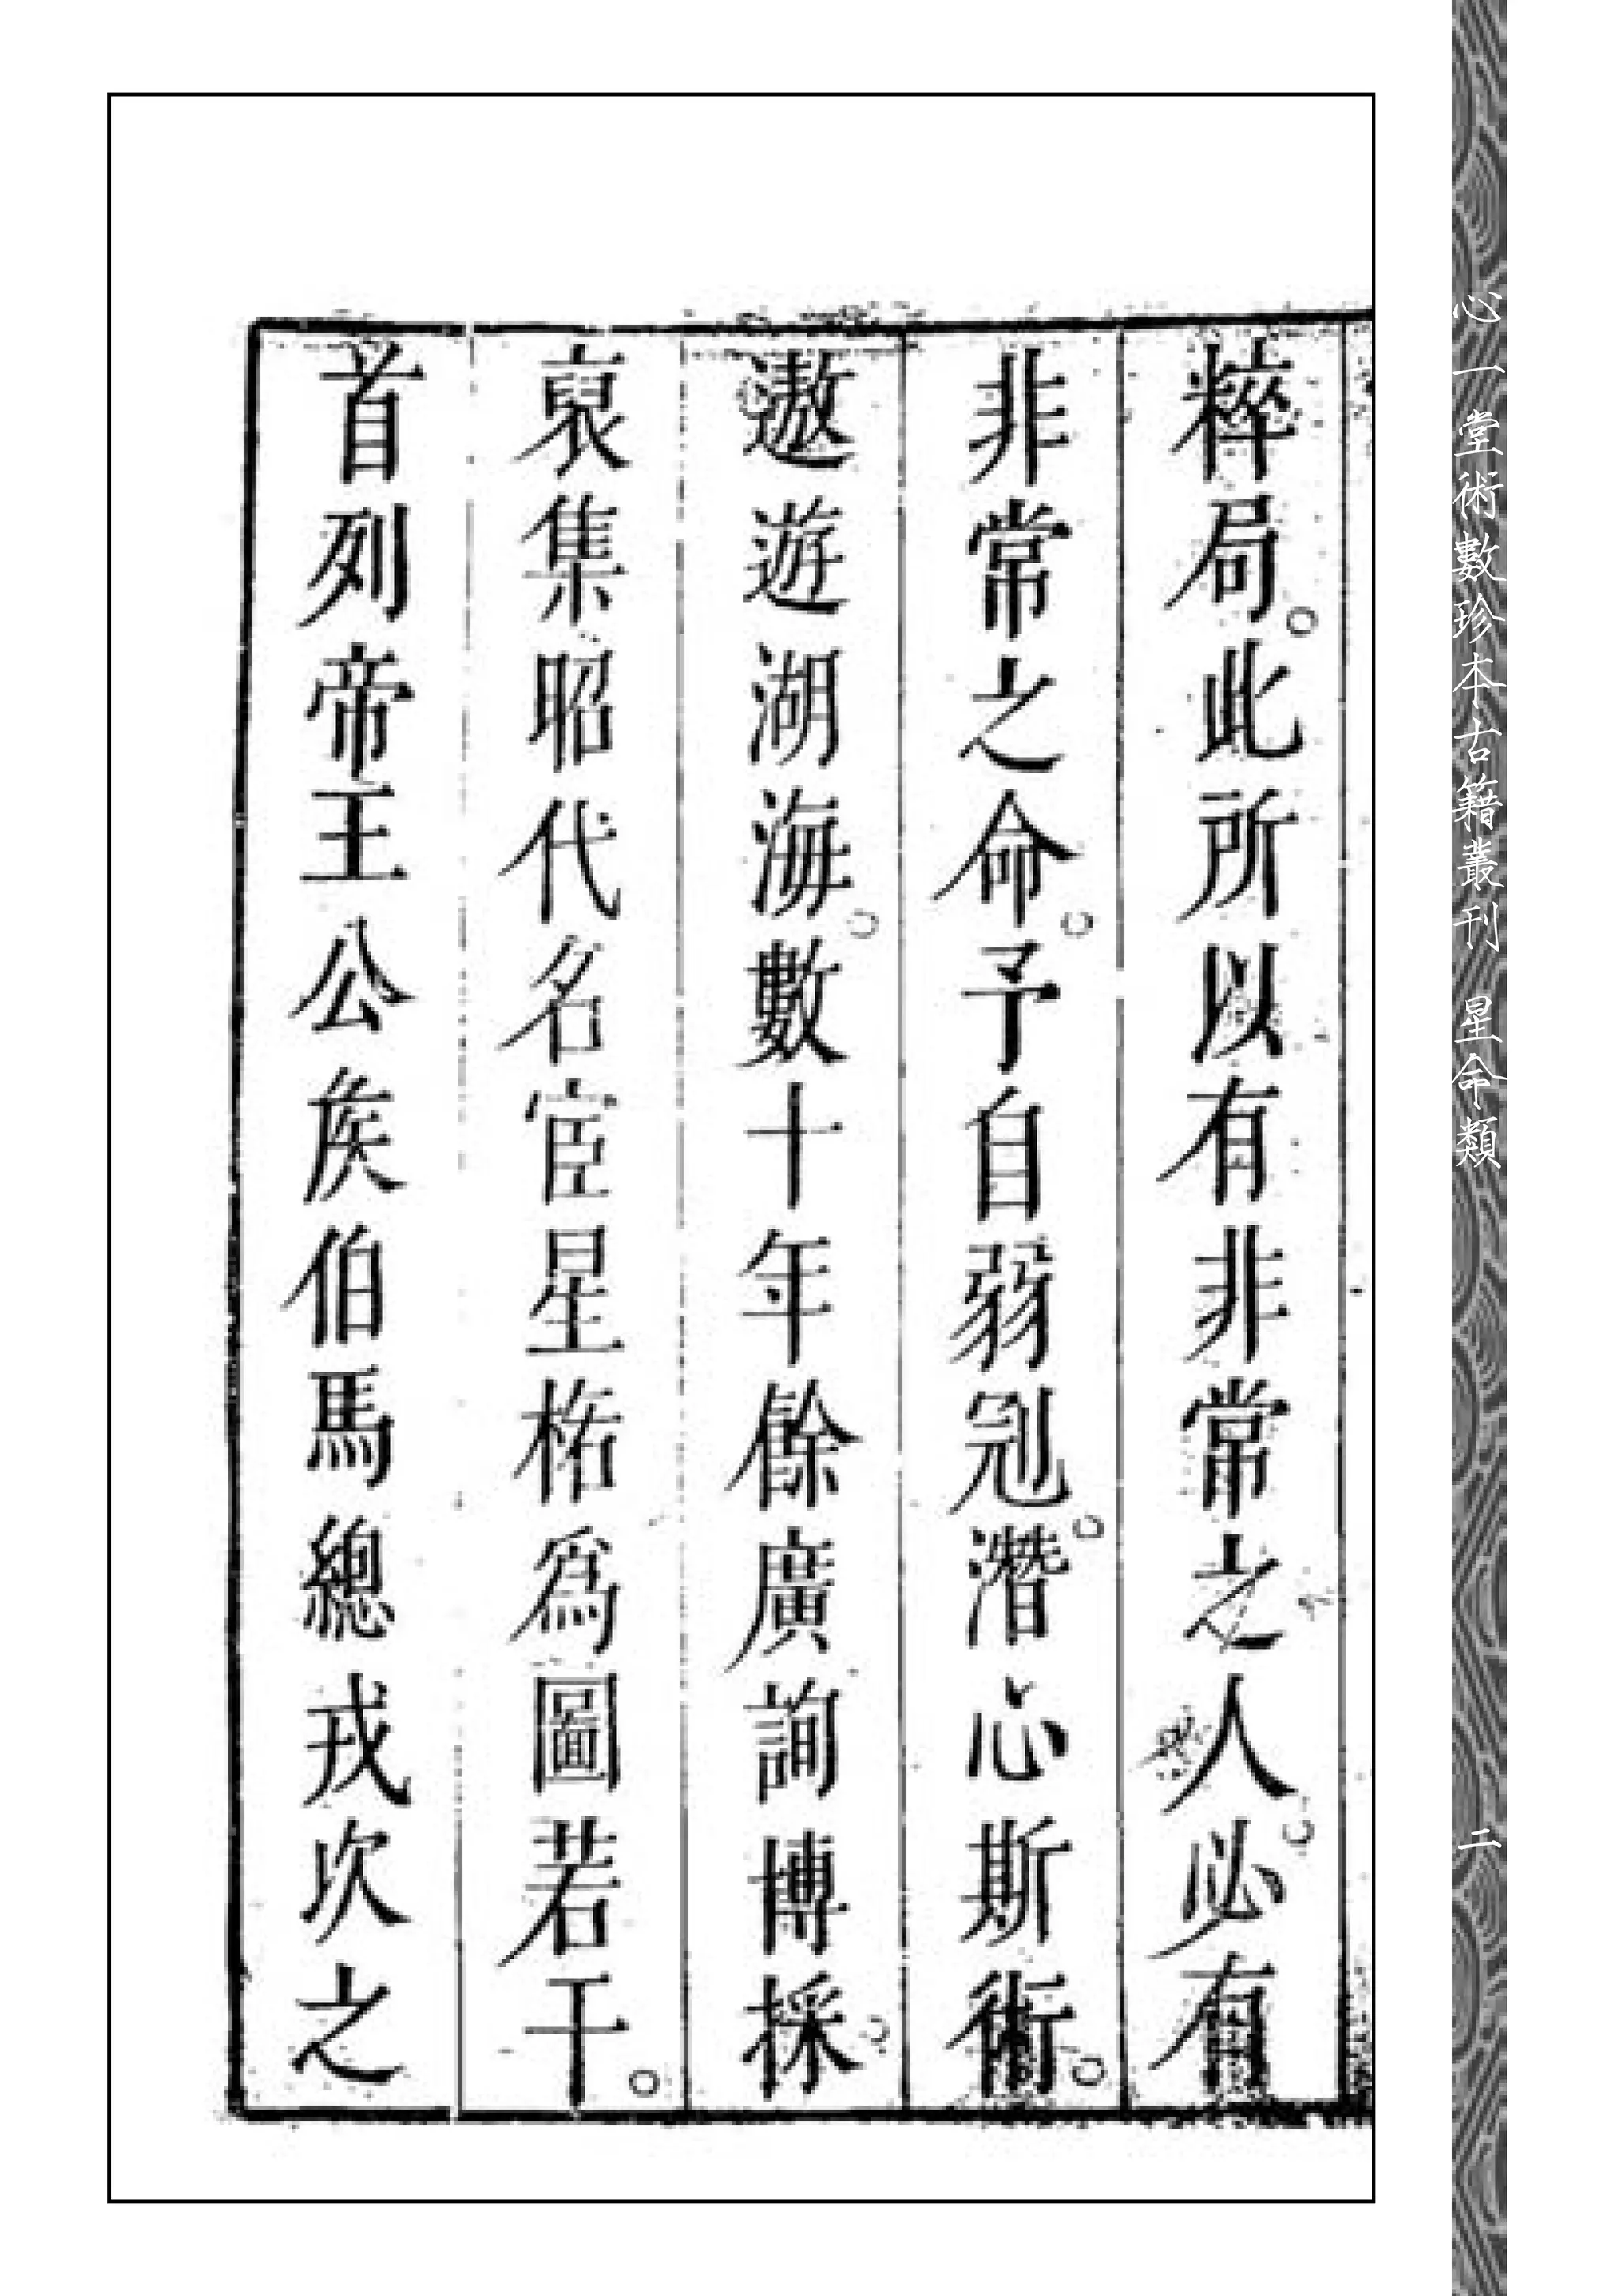 粹局。此所以有非常之人。必有
非常之命。予自弱冠。潛心斯術。
遨遊湖海。數十年餘廣詢博採。
裒集昭代名宦星格為圖若干。
首列帝王公侯伯馬總戎次之
心一堂術數珍本古籍叢刊　星命類
二